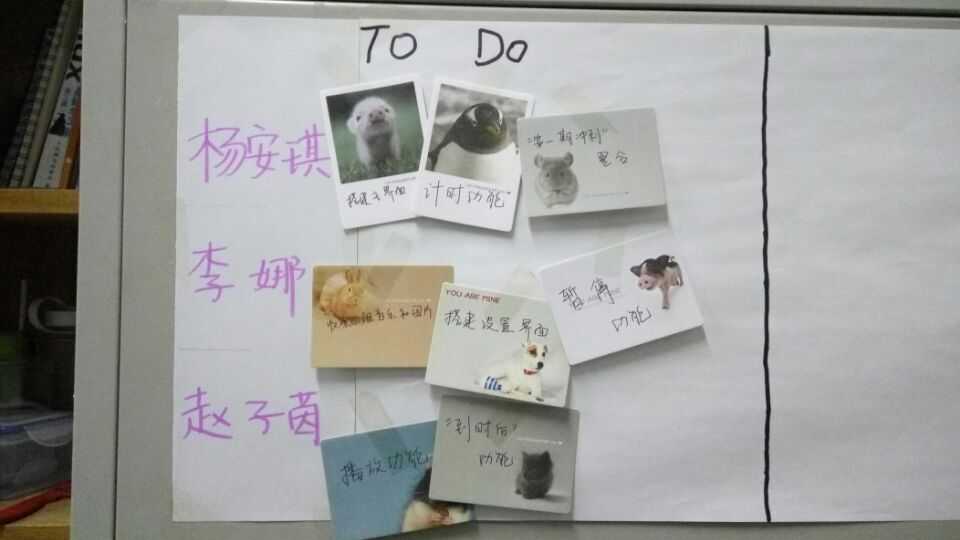 To Do
杨安琪
搭建主界面
计时功能
"第一期冲刺"
整合
李娜
收集 音乐和图片
YOU ARE MINE
搭建设置界面
暂停
功能
赵子茵
播放功能
"到时后"
功能